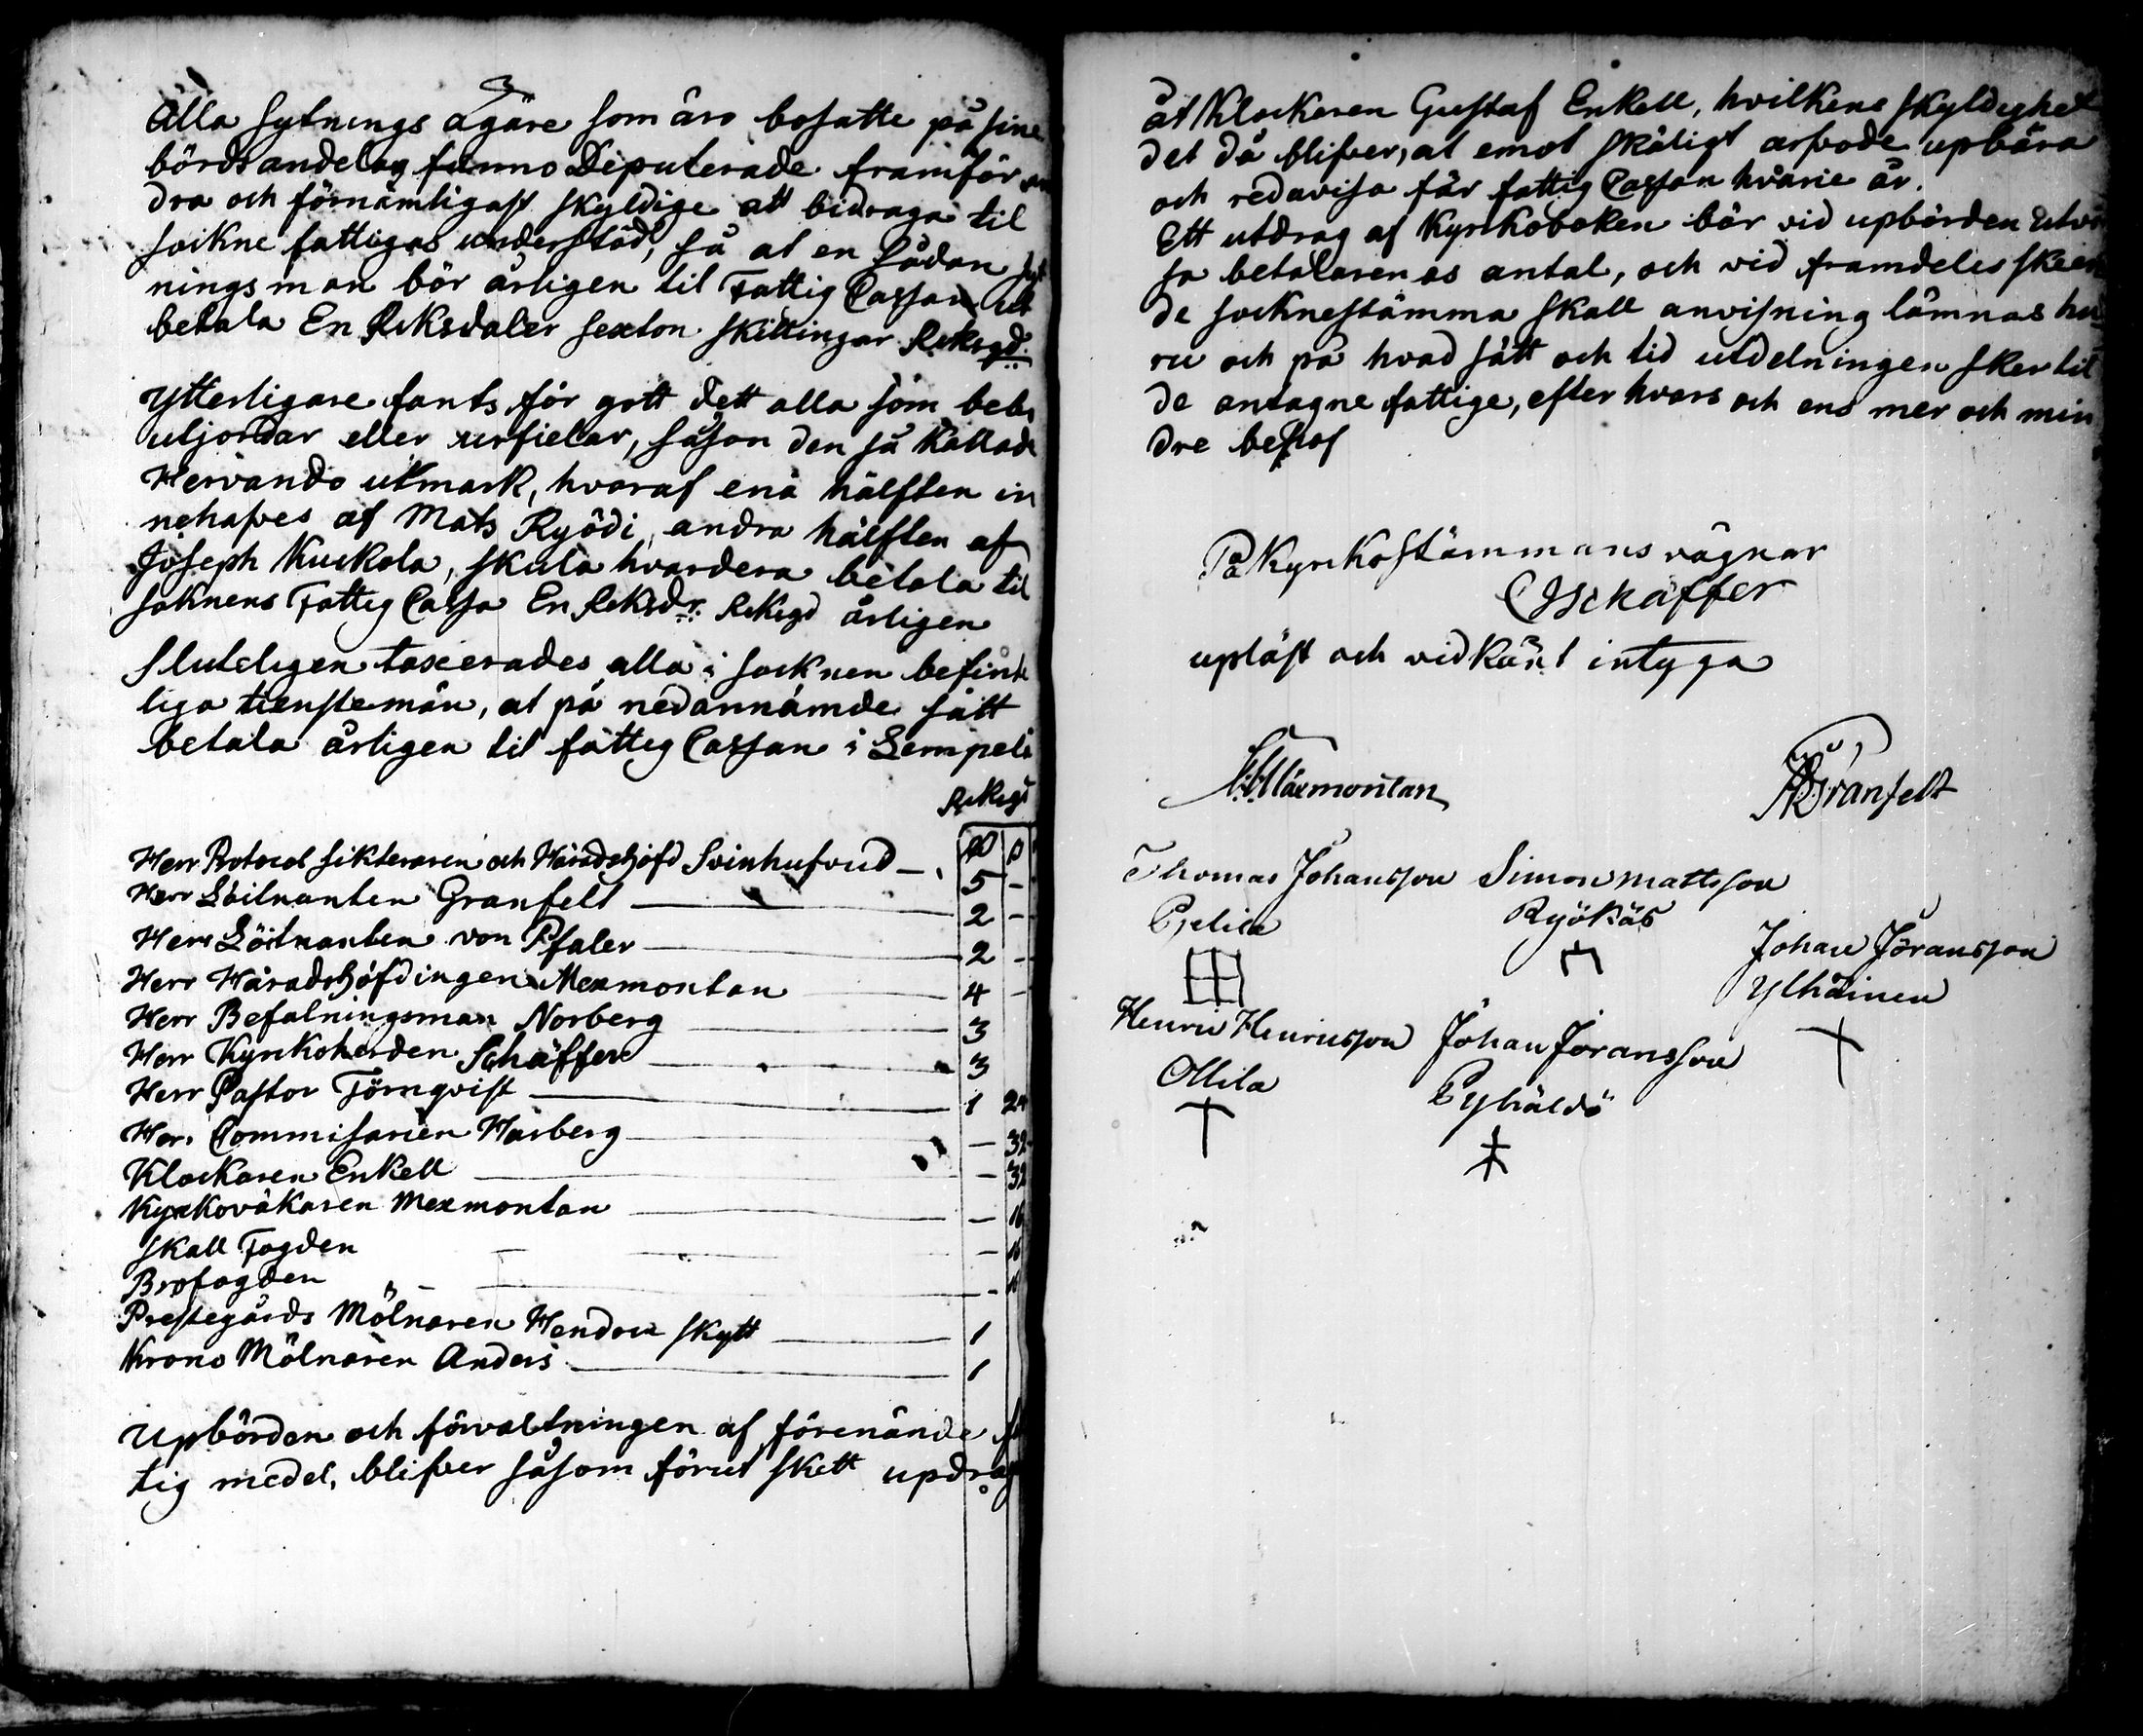 Alla sytnings ägare som äro bosatte på sine
börds andelar funno Deputerade framför an
dra och förnämligast skyldige att bidraga til
sockne fattigas understöd, så at en sådan syt
ningsman bör årligen til Fattig Cassan ut
betala En Riksdaler sexton skillingar Riksgd.
Ytterligare fants för gott dett alla som bebo
utjordar eller urfielar, såson den så kallade
Hervando utmark, hvaraf ena hälften in
nehafves af Mats Ryödi, andra hälften af
Joseph Kuckola, skula hvardera betala til
soknens Fattig Cassa En Riksdr. Riksgd årligen
Sluteligen taxerades alla i socknen befint
liga tienstemän, at på nedannämde sätt
betala årligen til fattig Cassan i Lempelä
Riksgd
Herr Protocol sikteraren och Häradshöfd Svinhufvud — 5 -
Herr Löitnanten Granfelt — 2 -
Herr Löitnanten von Pfaler — 2 -
Herr Häradshöfdingen Mexmontan — 4 -
Herr Befalningsman Norberg — 3
Herr Kyrkoherden Schäffer — 3
Herr Pastor Törnqvist — 1 24
Herr Commisarien Harberg — - 32
Klockaren Enkell — - 32
Kyrkovåkaren Mexmontan — - 16
Skall Fogden — - 16
Brofogden — - 16
Prestegårds Mölnaren Skytt — 1
Krono Mölnaren Anders — 1
Upbörden och förvaltningen af förenände fat
tig medel, blifver såsom förut skett updrag
åt Klockaren Gustaf Enkell, hvilkens skyldighet
det då blifver, at emot skäligt arfvode upbära
och redavisa för fattig Cassan hvarie år.
Ett utdrag af Kyrkoboken bör vid upbörden utvi
sa betalarenas antal, och vid framdeles skeen
de socknestämma skall anvisning lämnas hu
ru och på hvad sätt och tid utdelningen sker til
de antagne fattige, efter hvars och ens mer och min
dre behof
På Kyrkostämmans vägnar
Schäffer
upläst och vidkänt intyga
Mexmontan
Granfelt
Thomas Johansson Simon Mattsson
Ryökäs
Johan Jöransson
Ylhäinen
Henric Henricsson Johan Jöransson
Ollila
Pyhäldö